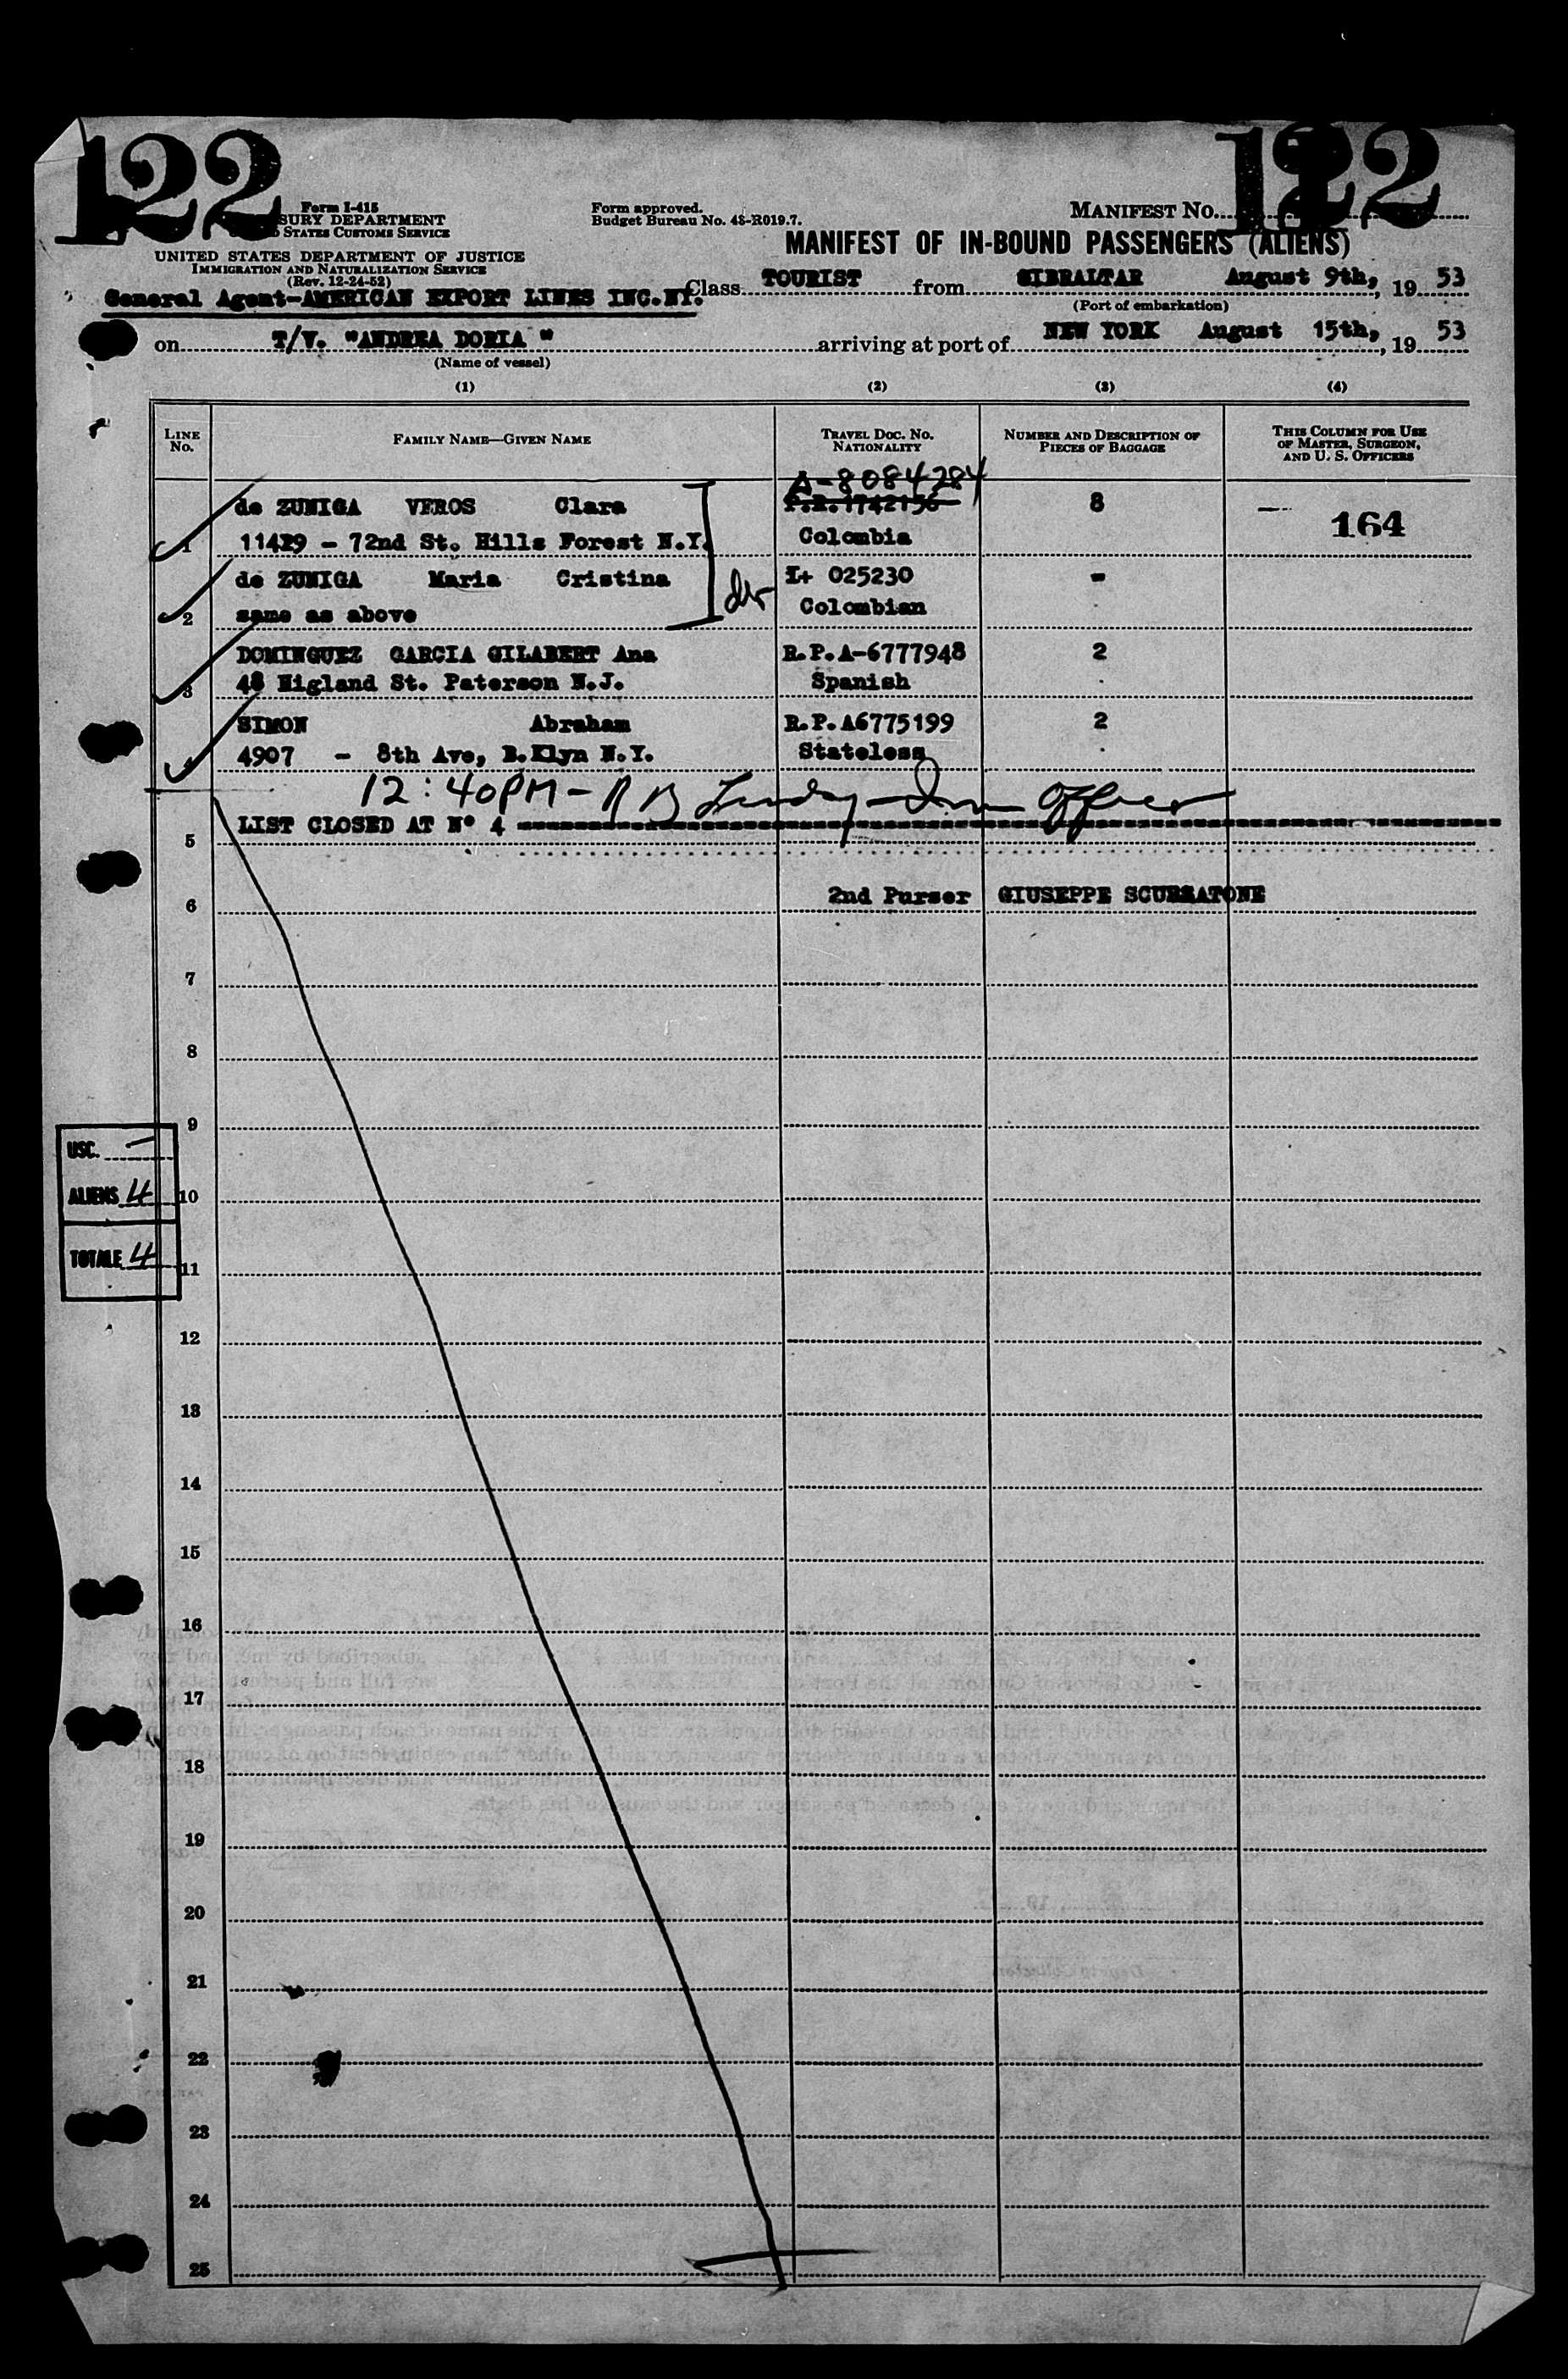 122
122
Form I-415
SURY DEPARTMENT
STATES CUSTOMS SERVICE
Form approved.
Budget Bureau No. 43-R019.7.
MANIFEST NO.
UNITED STATES DEPARTMENT OF JUSTICE
IMMIGRATION AND NATURALIZATION SERVICE
(Rev. 12-24-52)
MANIFEST OF IN-BOUND PASSENGERS (ALIENS)
General Agent-AMERICAN EXPORT LINES INC.NY.
Class TOURIST from GIBRALTAR August 9th, 19 53
(Port of embarkation)
on T/V. "ANDREA DORIA " arriving at port of NEW YORK August 15th, 19 53
(Name of vessel)
(1) (2) (3) (4)
LINE NO.
FAMILY NAME—GIVEN NAME
TRAVEL DOC. NO.
NATIONALITY
NUMBER AND DESCRIPTION OF
PIECES OF BAGGAGE
THIS COLUMN FOR USE
OF MASTER, SURGEON,
AND U. S. OFFICERS
A-8084284
de ZUNIGA VEROS Clara P.R.1742156 8 — 164
1 11429 - 72nd St. Hills Forest N.Y. Colombia
de ZUNIGA Maria Cristina I+ 025230 -
2 same as above Colombian
DOMINGUEZ GARCIA GILABERT Ana R.P.A-6777948 2
3 48 Higland St. Paterson N.J. Spanish
SIMON Abraham R.P.A6775199 2
4 4907 - 8th Ave, B.Klyn N.Y. Stateless
12:40PM - Officer
LIST CLOSED AT Nº 4
5
6 2nd Purser GIUSEPPE SCURRATONE
7
8
9
USC. —
ALIENS 4
10
TOTALE 4
11
12
13
14
15
16
17
18
19
20
21
22
23
24
25